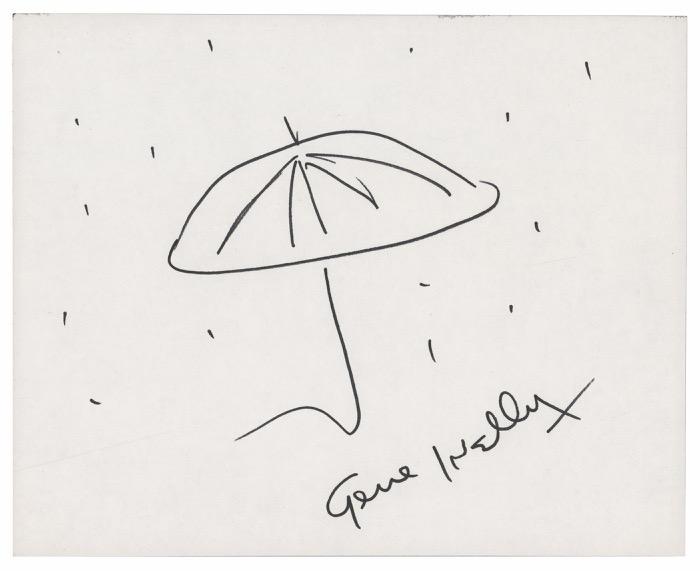 Gene Kelly